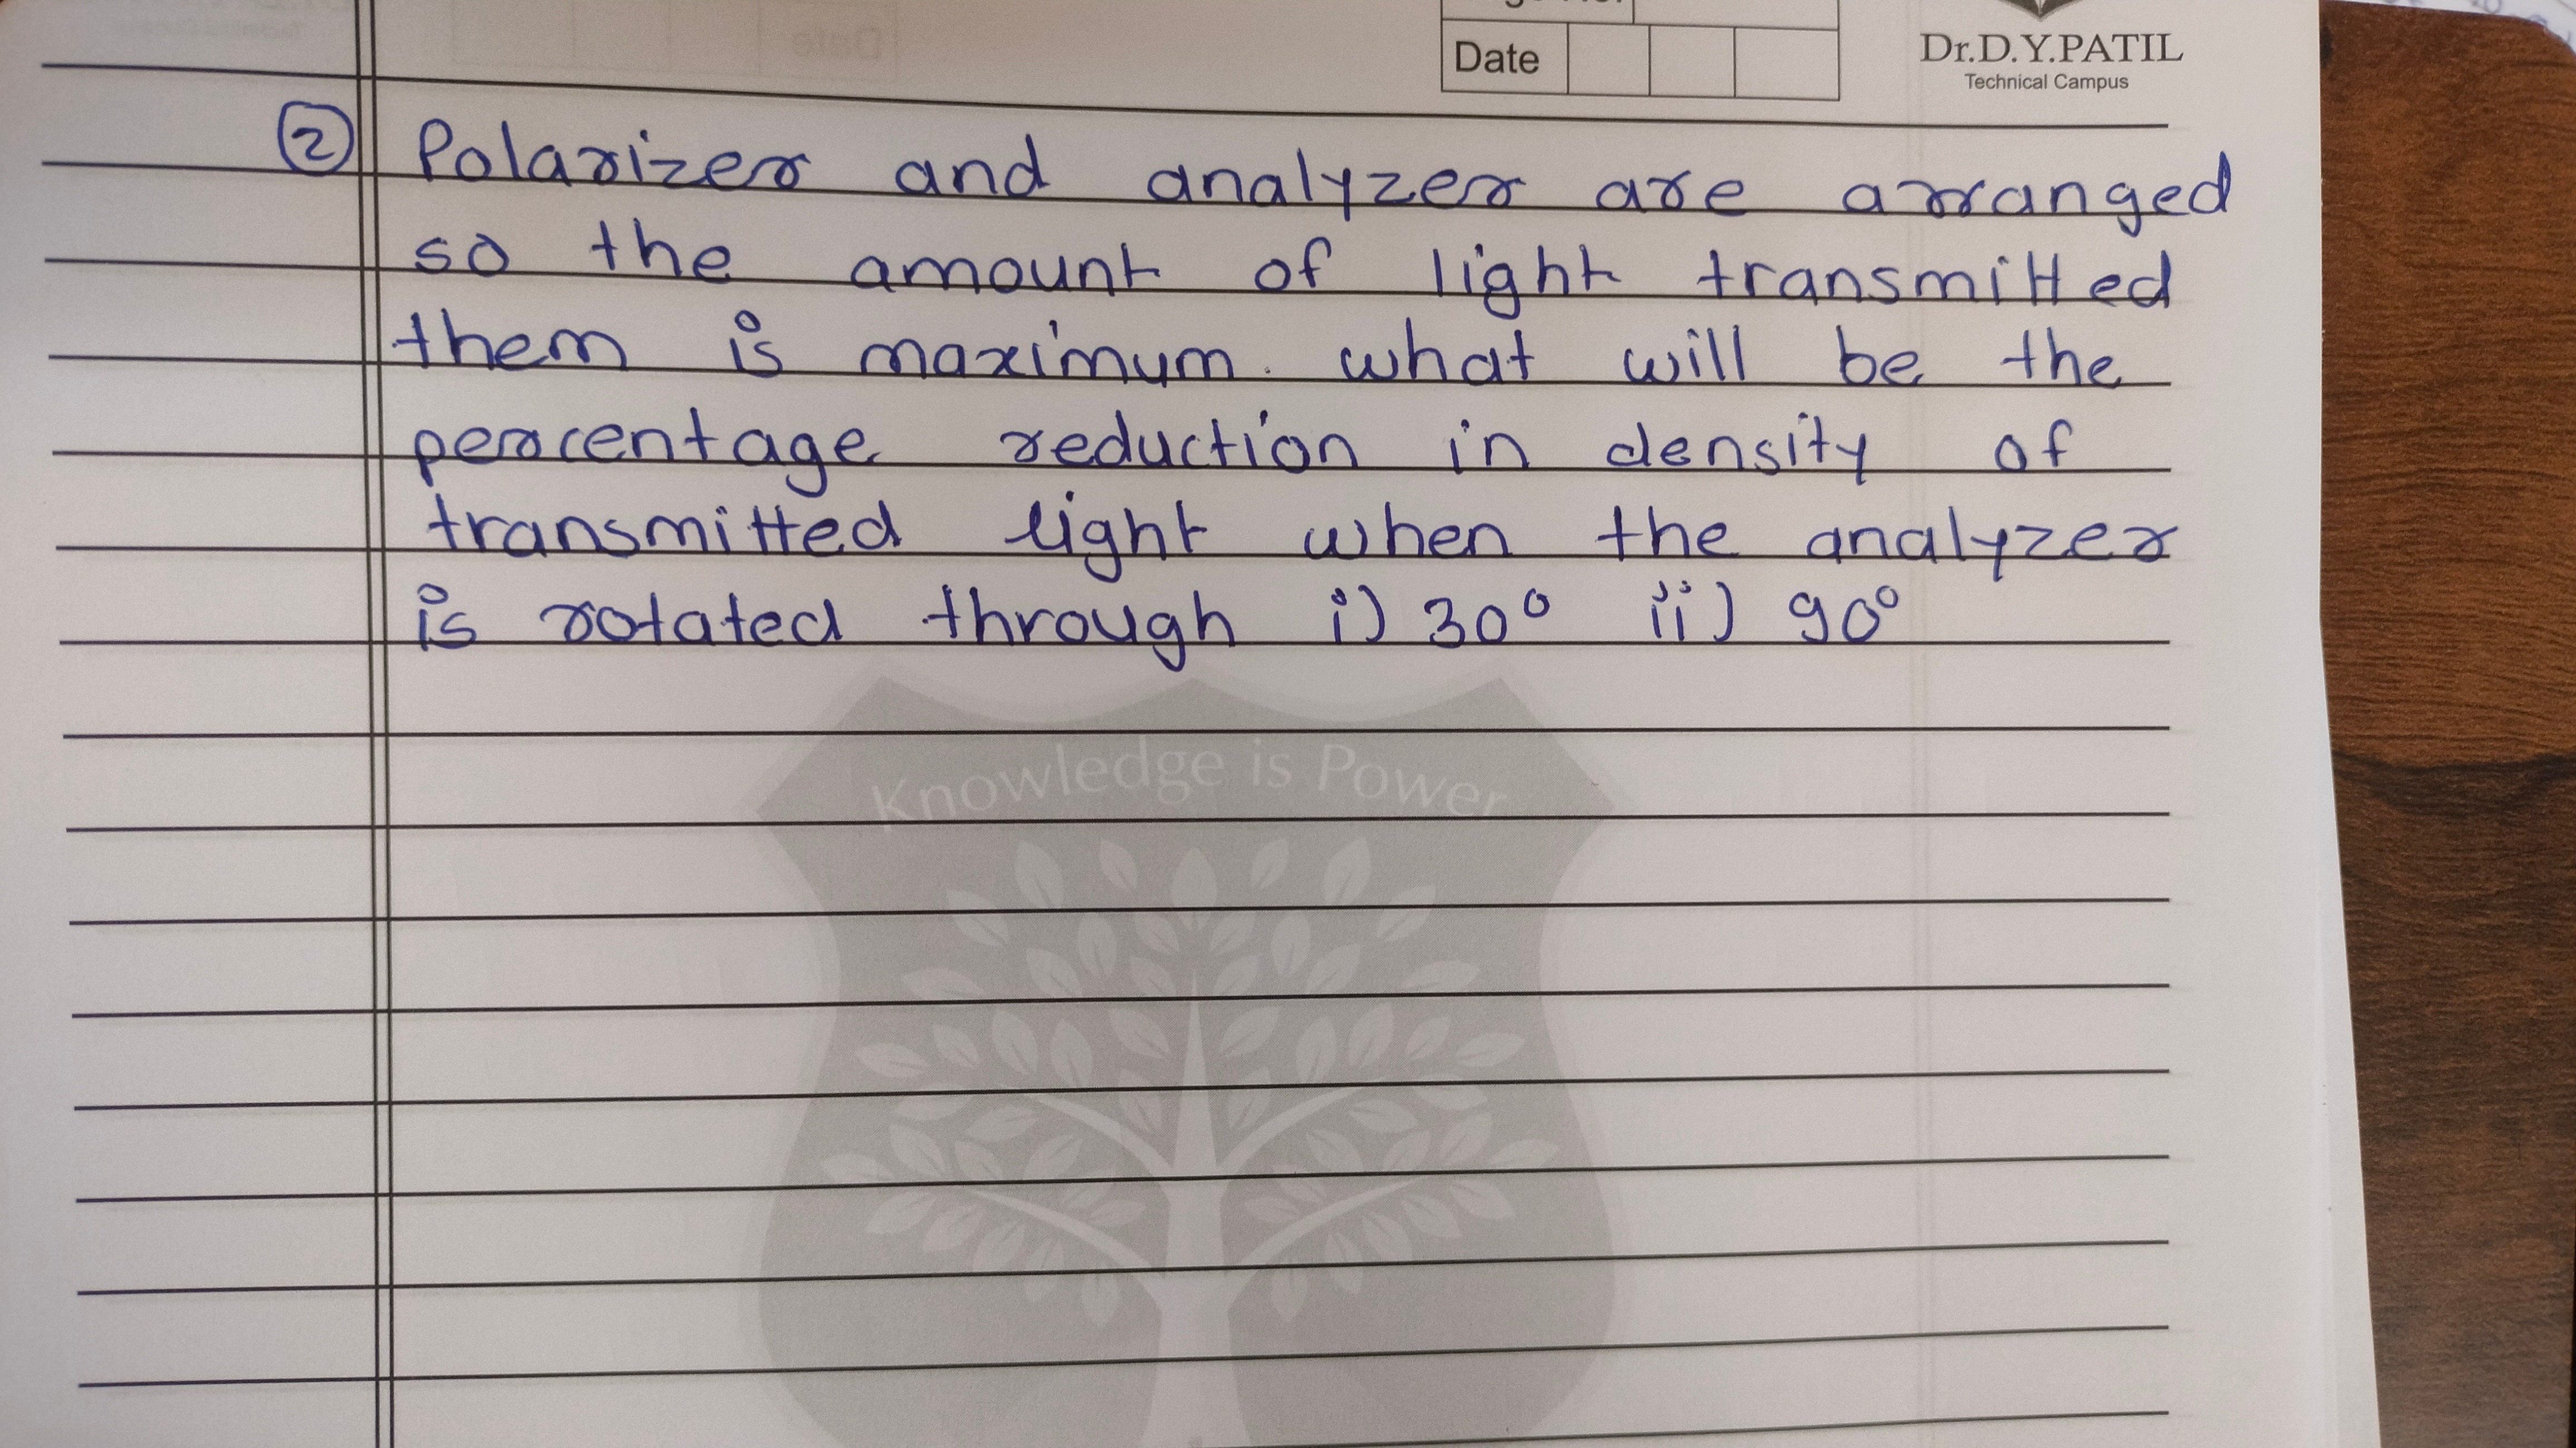 Date
Dr.D.Y.PATIL
Technical Campus
② Polarizer and analyzer are arranged
so the amount of light transmitted
them is maximum. what will be the
percentage reduction in density of
transmitted light when the analyzer
is rotated through i) 30° ii) 90°
Knowledge is Power